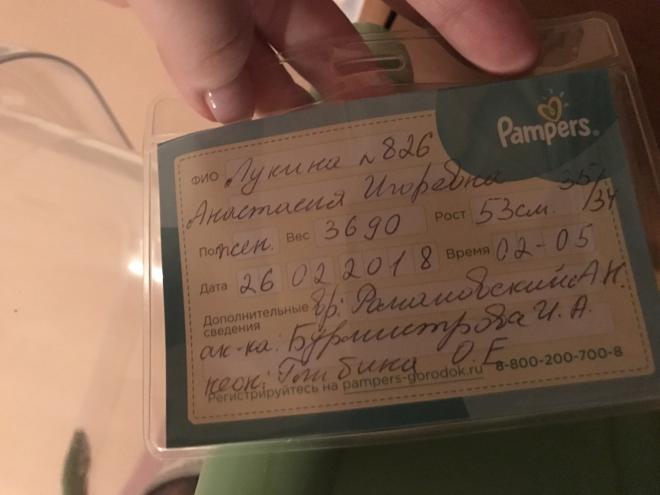 Pampers®
ФИО Лукина №826
Анастасия Игоревна
Пол жен. Вес 3690 Рост 53см. 35/34
Дата 26 02 2018 Время 02-05
Дополнительные сведения вр: Романовский А.Н.
ак-ка: Бурмистрова И. А.
неон: О.Е
Регистрируйтесь на pampers-gorodok.ru 8-800-200-700-8